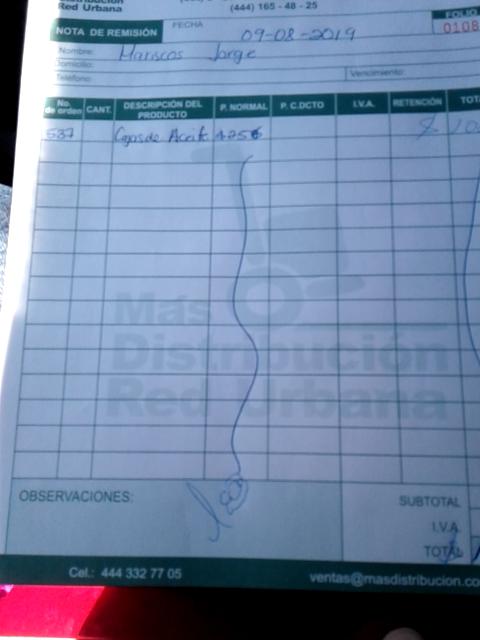 Distribución
Red Urbana
(444) 165 - 48 - 25
NOTA DE REMISIÓN
FECHA
09-08-2019
FOLIO
0108
Nombre: Mariscos Jorge
Domicilio:
Teléfono:
Vencimiento:
No. de orden CANT. DESCRIPCIÓN DEL PRODUCTO P. NORMAL P. C.DCTO I.V.A. RETENCIÓN TOT
537 Cajas de Aceite
Más
Distribución
Red Urbana
OBSERVACIONES:
SUBTOTAL
I.V.A.
TOTAL
Cel.: 444 332 77 05
ventas@masdistribucion.co